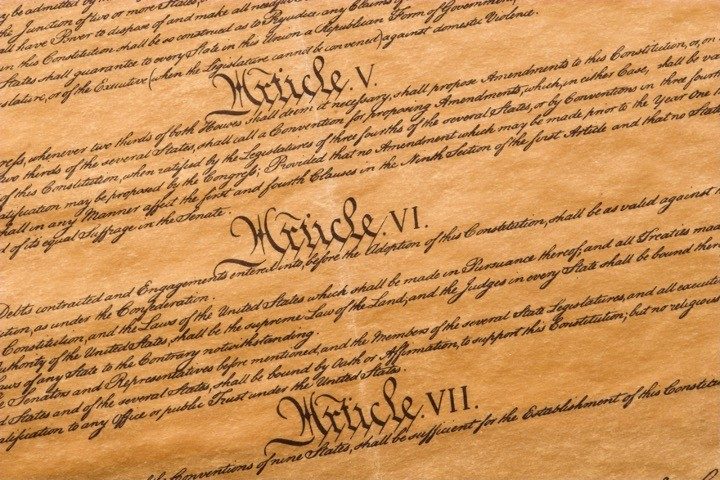 be admitted by
the Junction of two or more States,
all have Power to dispose of and make all needful
in this Constitution shall be so construed as to Prejudice any Claims of
States shall guarantee to every State in this Union a Republican Form of Government,
islature, or of the Executive (when the Legislature cannot be convened) against domestic Violence.
Article. V.
ress, whenever two thirds of both Houses shall deem it necessary, shall propose Amendments to this Constitution, or, on
two thirds of the several States, shall call a Convention for proposing Amendments, which, in either Case, shall be va
of this Constitution, when ratified by the Legislatures of three fourths of the several States, or by Conventions in three four
atification may be proposed by the Congress; Provided that no Amendment which may be made prior to the Year One
hall in any Manner affect the first and fourth Clauses in the Ninth Section of the first Article and that no Stat
d of its equal Suffrage in the Senate.
Article. VI.
Debts contracted and Engagements entered into, before the Adoption of this Constitution, shall be as valid against
ution, as under the Confederation.
Constitution, and the Laws of the United States which shall be made in Pursuance thereof; and all Treaties mad
uthority of the United States, shall be the supreme Law of the Land; and the Judges in every State shall be bound there
aws of any State to the Contrary notwithstanding.
e Senators and Representatives before mentioned, and the Members of the several State Legislatures, and all executi
d States and of the several States, shall be bound by Oath or Affirmation, to support this Constitution; but no religious
alification to any Office or public Trust under the United States.
Article. VII.
Conventions of nine States, shall be sufficient for the Establishment of this Constitu